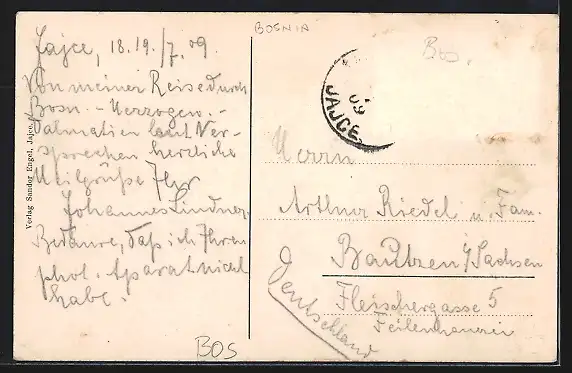 Jajce, 18.19./7.09
Von meiner Reise durch
Bosn. - Herzogew. -
Dalmatien laut Ver-
sprechen herzliche
Heilgrüße Ihr
Johannes Lindner.
Bedaure, daß ich Ihren
phot. Aparat nicht
habe.
Verlag Sandor Engel, Jajce.
BOSNIA
Bos.
09
JAJCE
Herrn
Arthur Riedel u. Fam.
Bautzen i/Sachsen
Fleischergasse 5
Feilenhauerei
Deutschland
BOS